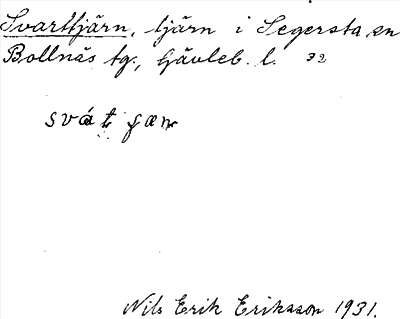 Svarttjärn, tjärn i Segersta sn
Bollnäs tg., Gävleb. l. 32
svát
Nils Erik Eriksson 1931.